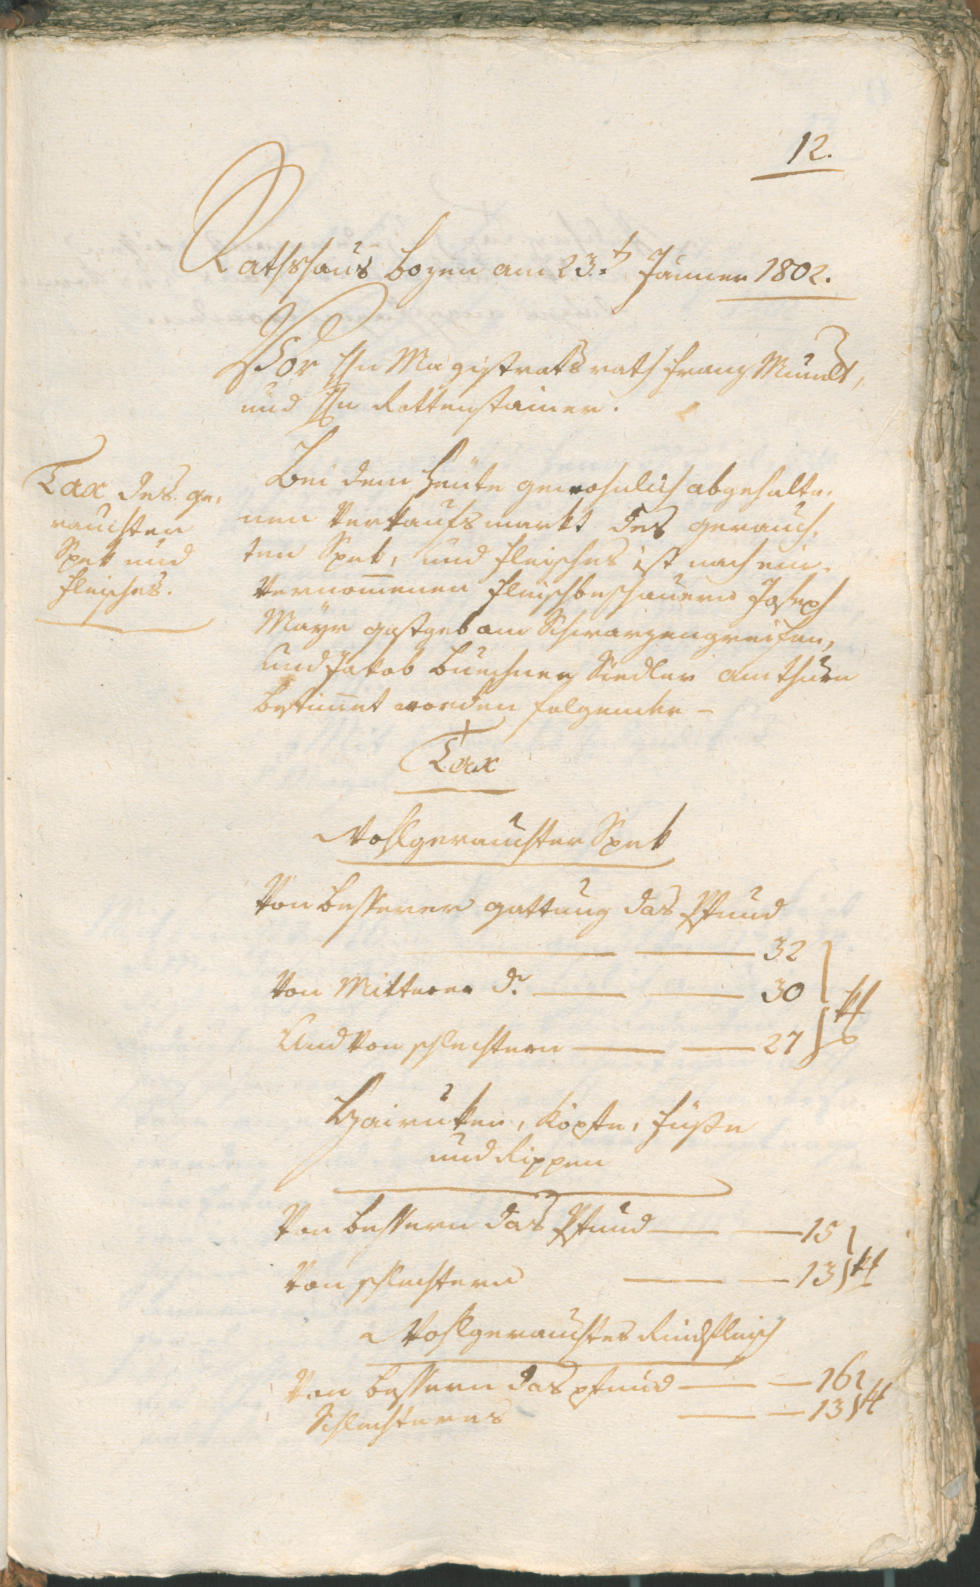 12.
Rathshaus Bozen am 23.t Jänner 1802.
Vor Hn Magistratsrath Franz Mumelt,
und Hn Rottensteiner.
Tax des ge,
rauchten
Spek und
Fleisches.
Bei dem heute gewohnlich abgehalte,
nen Verkaufsmarkt des gerauch,
ten Spek, und Fleisches ist nach ein,
vernommenen Fleischbeschauern Joseph
Mayr gastgeb am Schwarzengreifen,
und Jakob Buechner Siedler am thurn
bestimmet worden folgender –
Tax
Wohlgerauchter Spek
Von besserer gattung das Pfund
32
Von Mitterer do. 30
Und von schlechtern 27
Köpfe, Füße
und Rippen
Von bessern das Pfund 15
Von schlechtern 13
Wohlgerauchtes Rindfleisch
Von bessern das pfund 16
Schlechteres 13